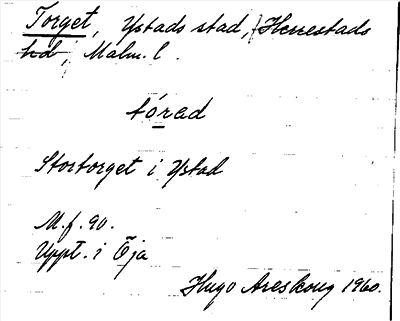 Torget, Ystads stad, Herrestads
hd, Malm. l.
tórad
Stortorget i Ystad
M. f. 90.
Uppt. i Öja
Hugo Areskoug 1960.